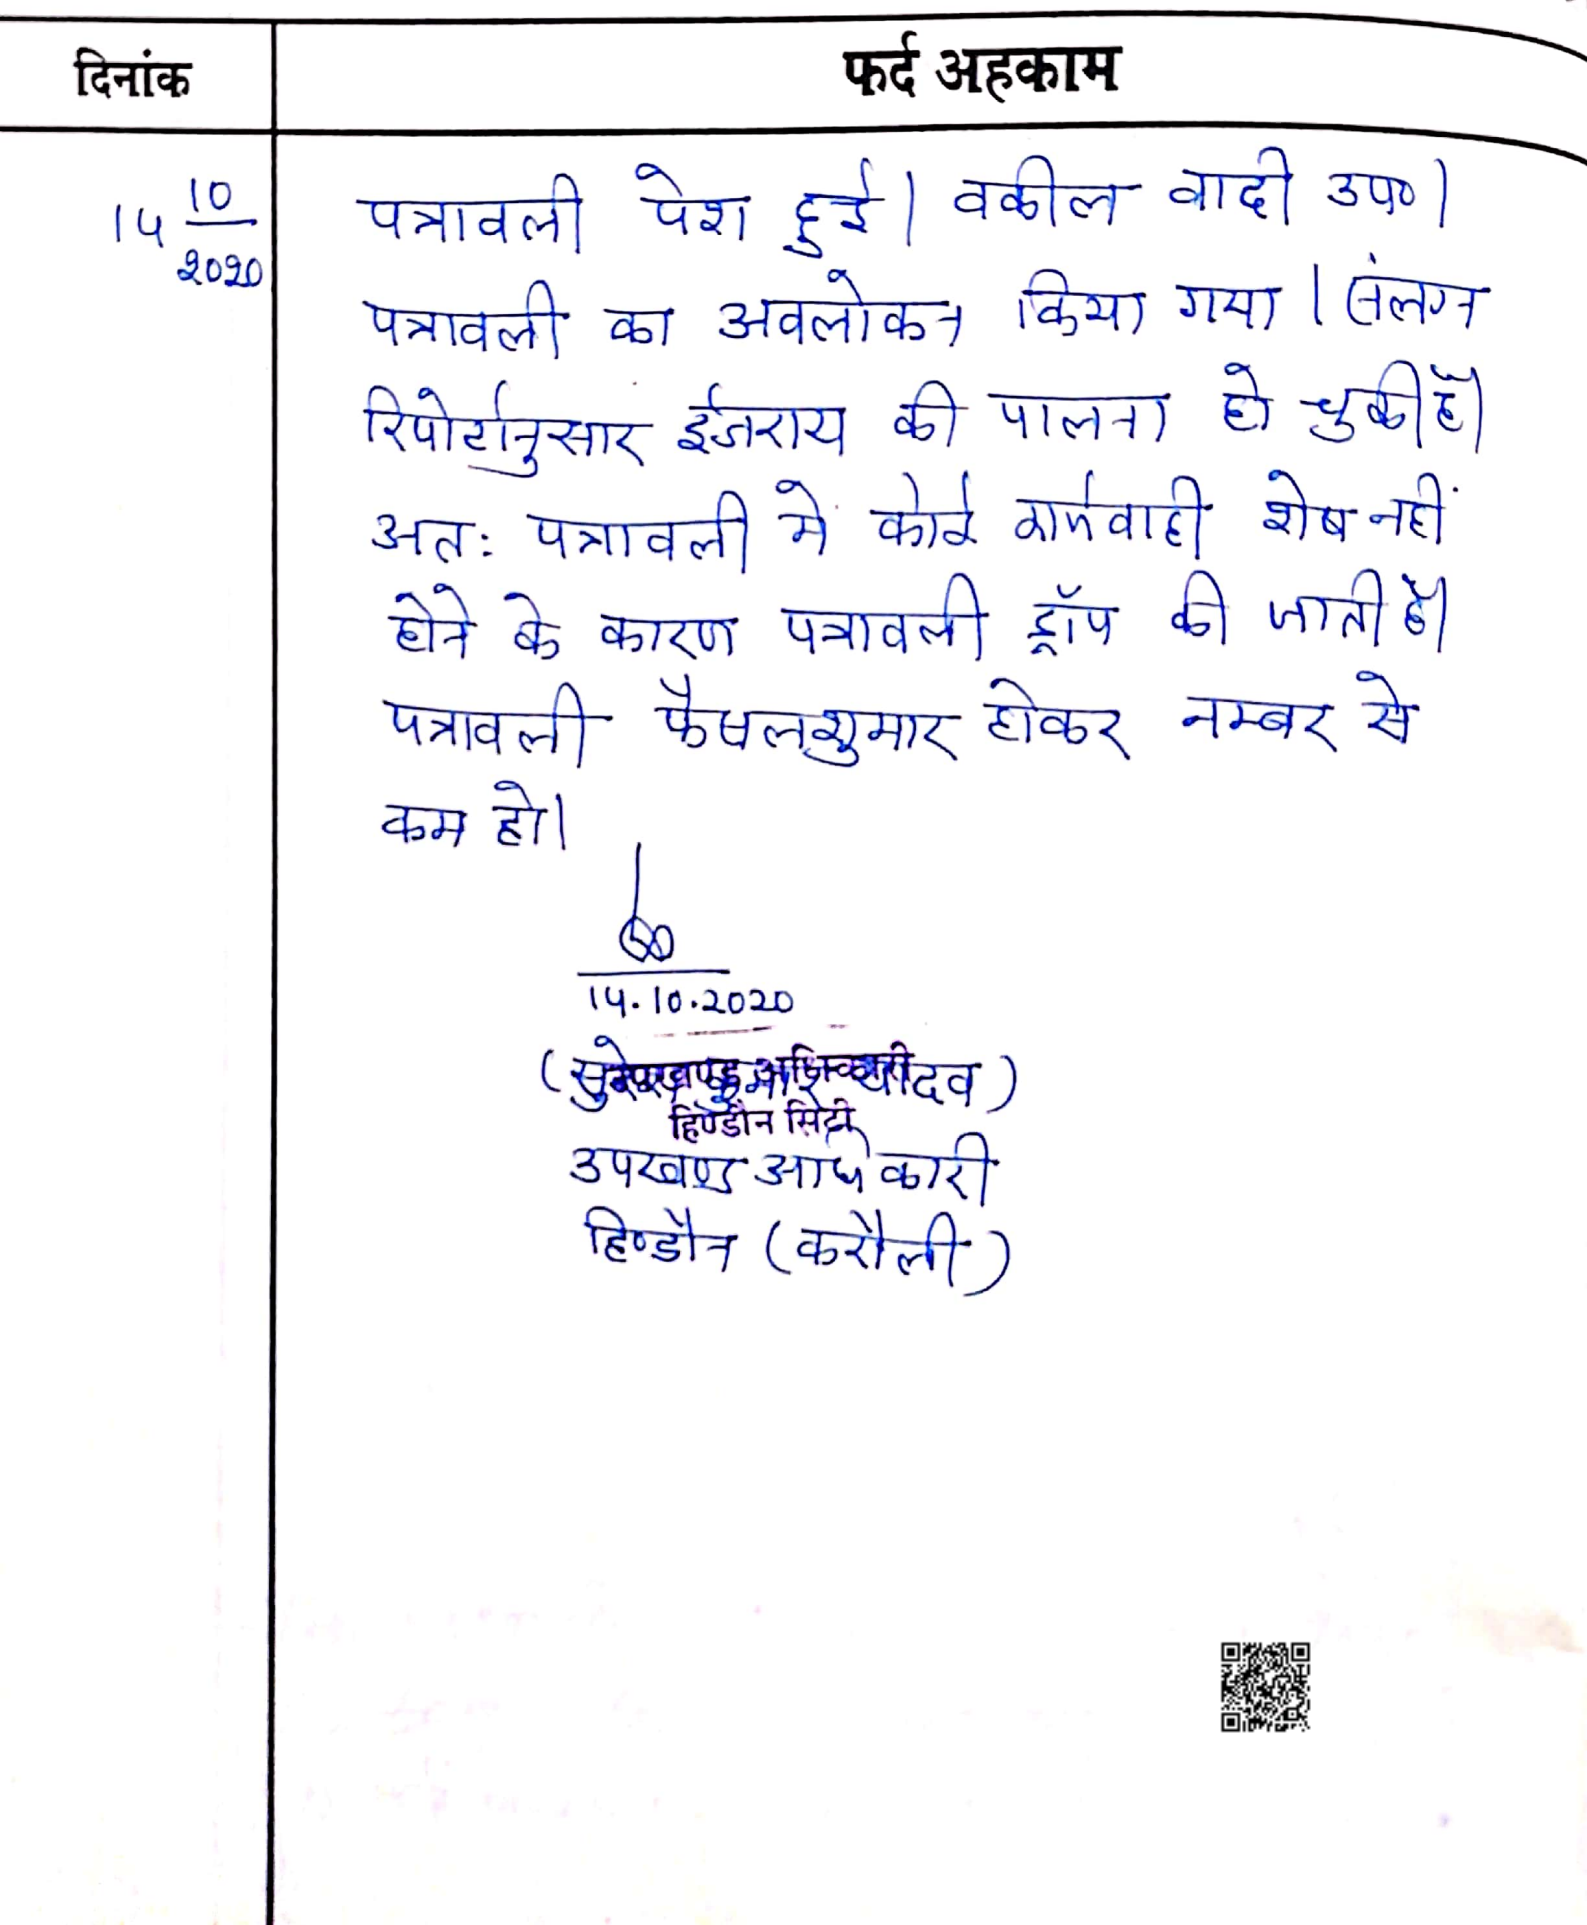 दिनांक
फर्द अहकाम
14 10/2020
पत्रावली पेश हुई। वकील वादी उप०।
पत्रावली का अवलोकन किया गया। संलग्न
रिपोर्टानुसार ईजराय की पालना हो चुकी है।
अतः पत्रावली मे कोई कार्यवाही शेष नहीं
होने के कारण पत्रावली ड्रॉप की जाती है।
पत्रावली फैसलशुमार होकर नम्बर से
कम हो।
14.10.2020
(सुरेश कुमार यादव)
उपखण्ड अधिकारी
हिण्डौन सिटी
उपखण्ड अधिकारी
हिण्डौन (करौली)